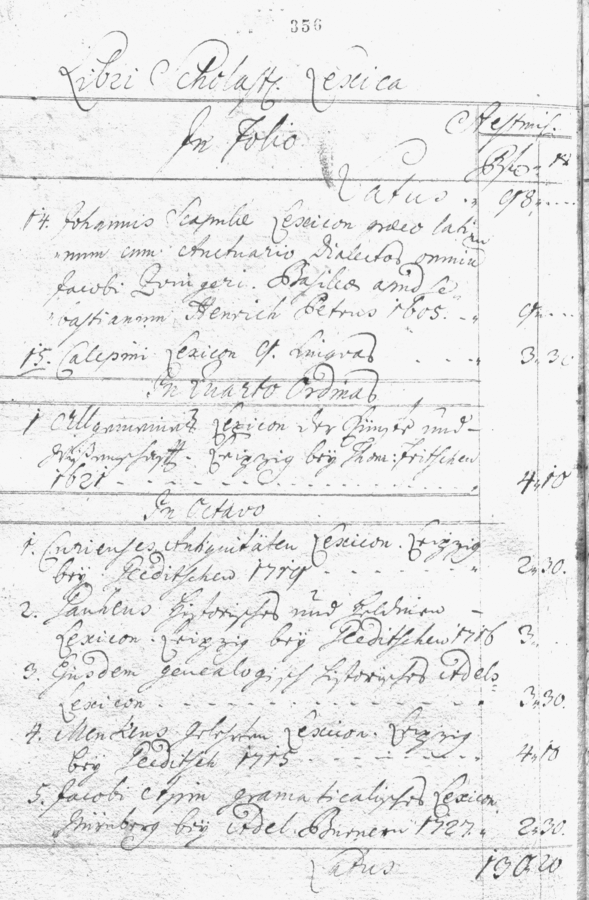 356
Libri Scholast. Lexica
In Folio
Aestmis.
Rfl. xr
Latus 98
14. Johannis Scapulae Lexicon graeco lati-
num cum Auctuario Dialectos omniu
Jacobi Zuingeri. Basileae apud Se-
bastianum Henrich Petrus 1605. 9
15. Calepini Lexicon 9. Linguas 3. 30
In Quarto Ordinas
1 Allgemeines Lexicon der Künste und
Wißenschafft. Leipzig bey Thom: Fritschen
1621 4. 10
In Octavo
1. Curienses Antiquitäten Lexicon. Leipzig
bey Gleditschen 1719 2. 30.
2. historisches und
Lexicon. Leipzig bey Gleditschen 1716 3
3. Ejusdem genealogisch historisches Adels
Lexicon 3. 30.
4. Menkens Gelehrten Lexicon. Leipzig
bey Gleditsch 1715 4. 10
5. Jacobi gramaticalisches Lexicon.
Nürnberg bey Adel. 1727. 2. 30.
Latus 130 20